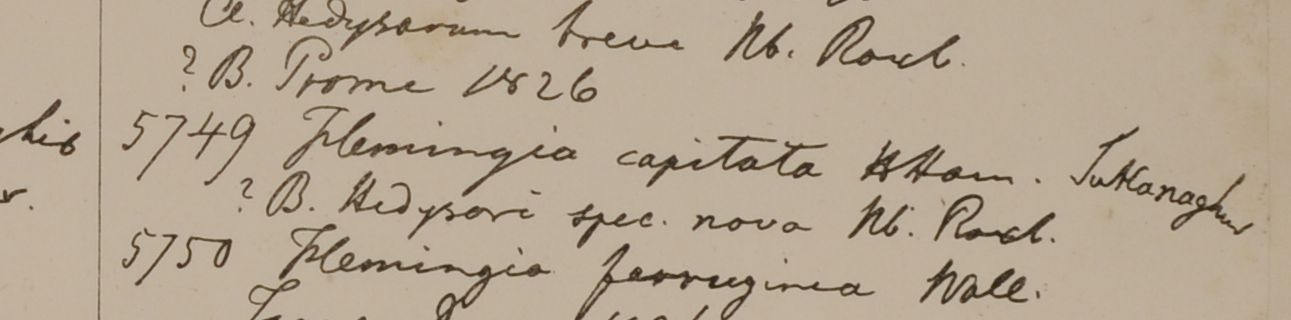 a. Hedysarum breve Hb. Roxb.
? B. Prome 1826
5749 Flemingia capitata HHam. Sukanaghur
? B. Hedysari spec. nova Hb. Roxb.
5750 Flemingia ferruginea Wall.